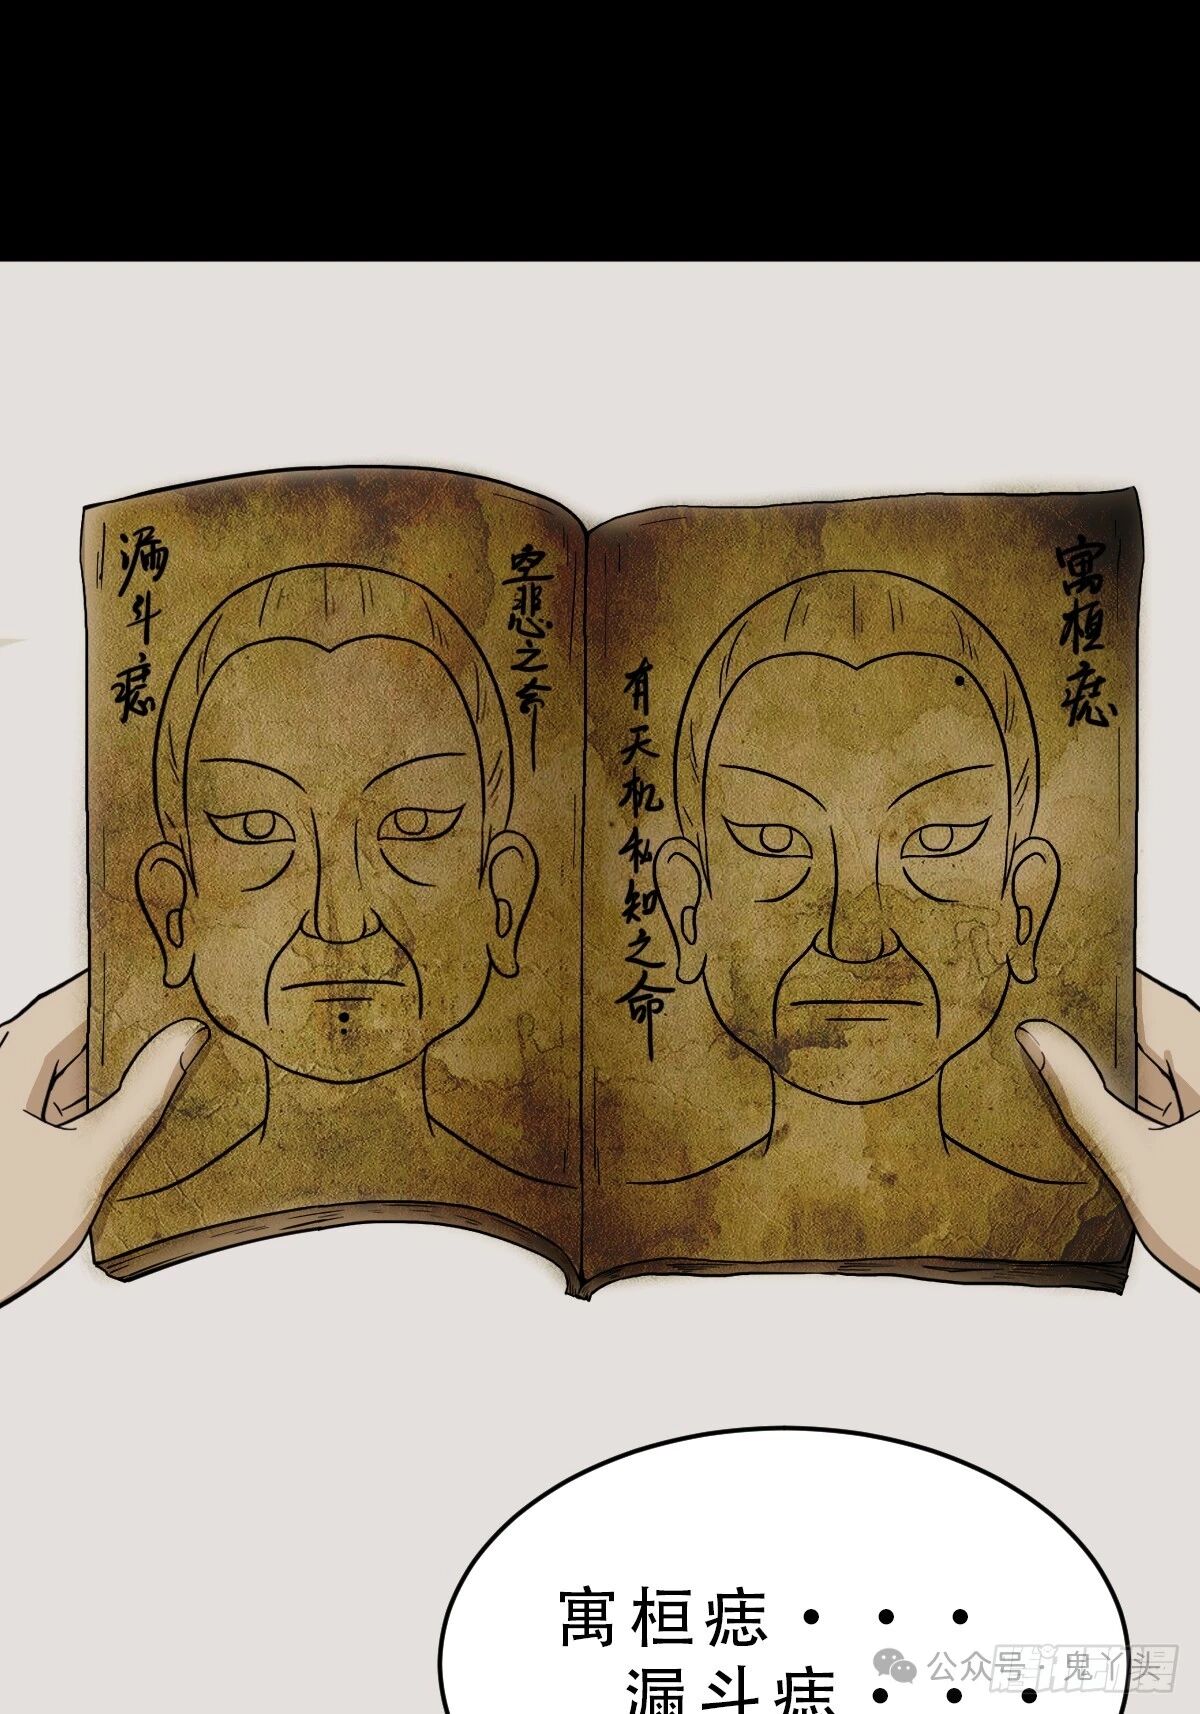 漏斗痣
空悲之命
有天机私知之命
寓桓痣
寓桓痣···
漏斗痣···
公众号·鬼丫头